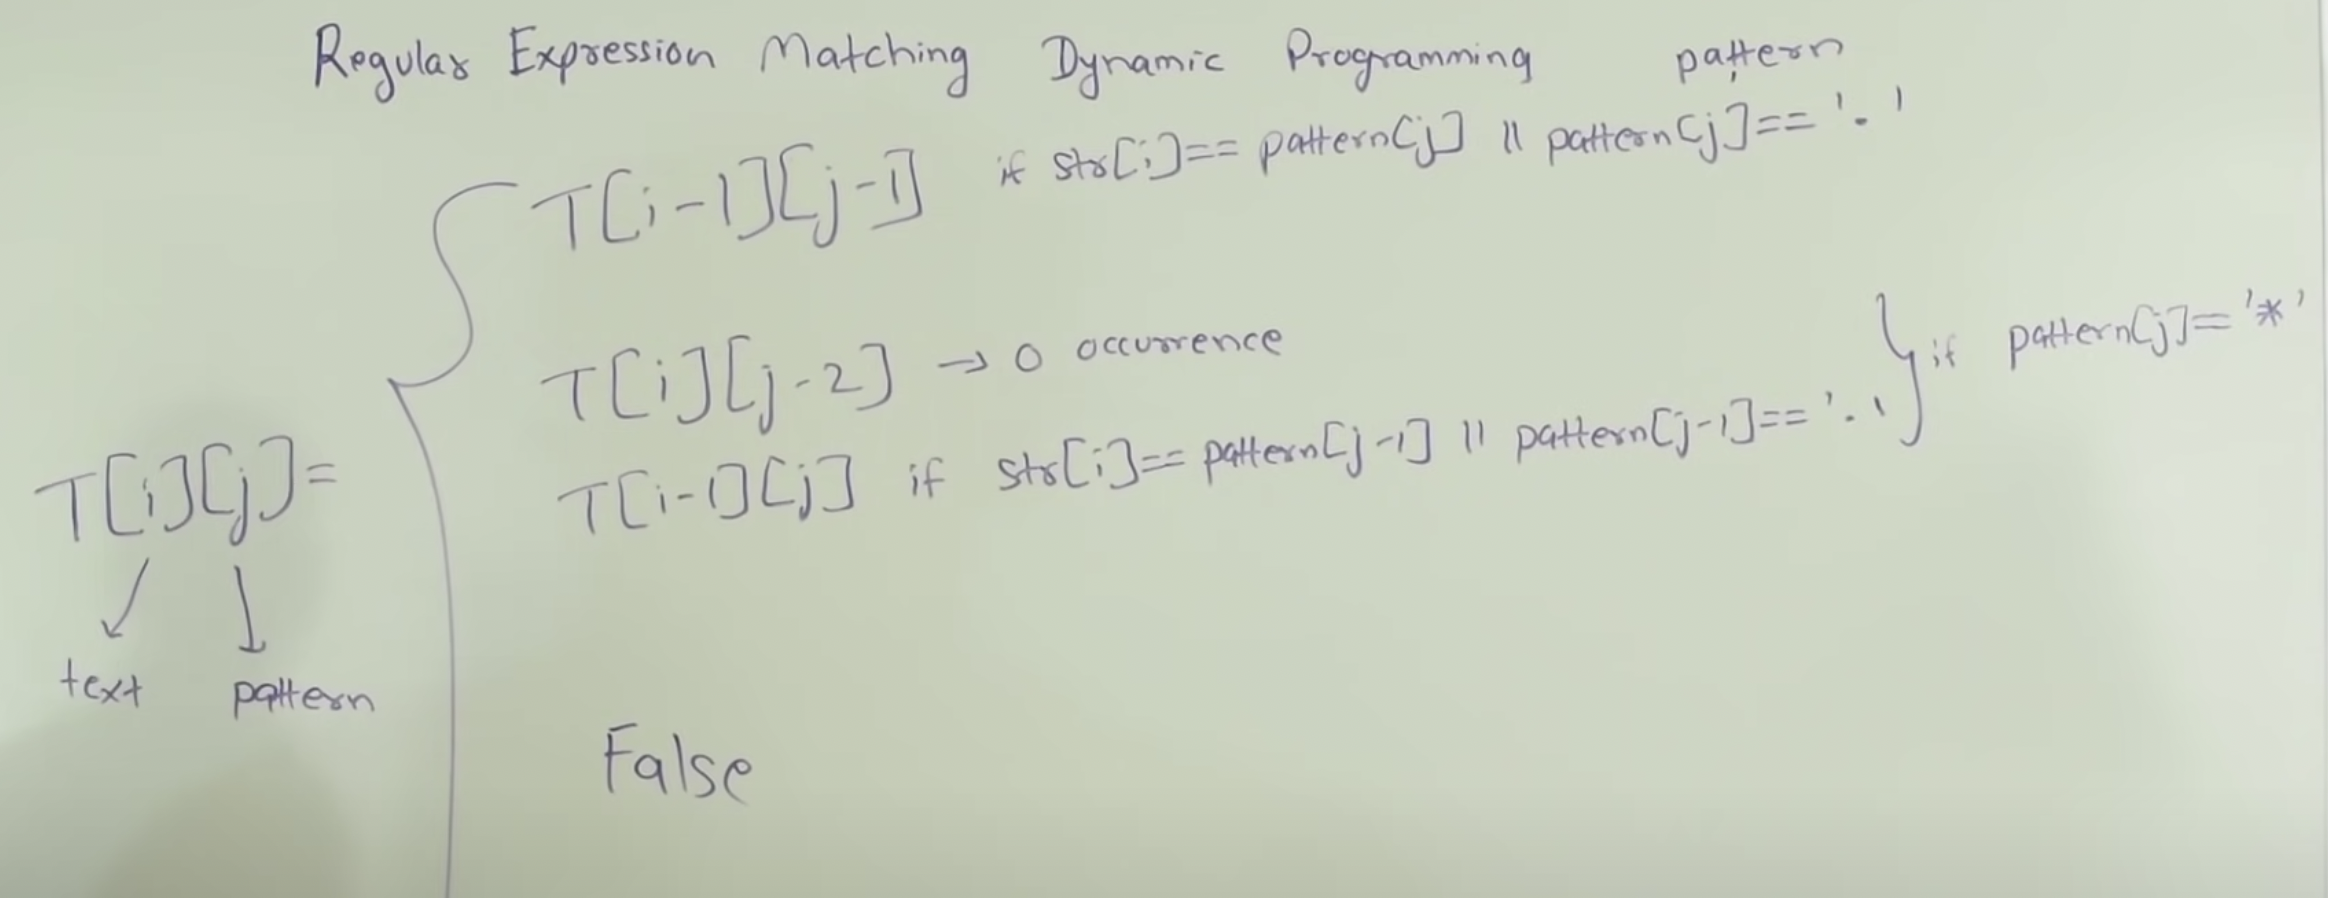 Regular Expression Matching Dynamic Programming pattern
T[i-1][j-1] if str[i]== pattern[j] || pattern[j]=='.'
T[i][j-2] → 0 occurrence
T[i-1][j] if str[i]== pattern[j-1] || pattern[j-1]=='.' } if pattern[j]='*'
T[i][j]=
text pattern
False